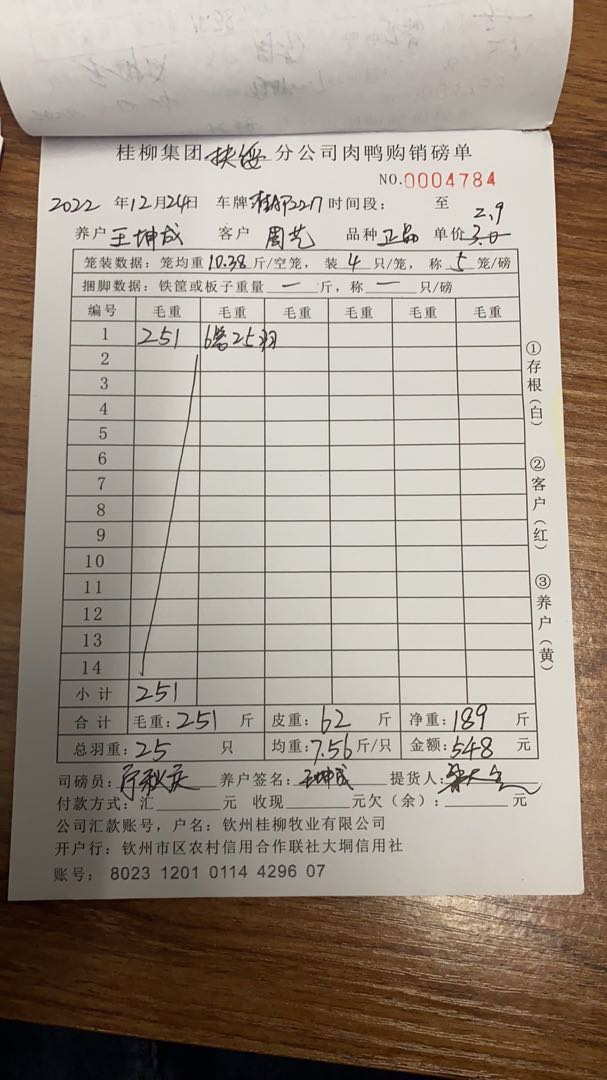 桂柳集团 扶绥 分公司肉鸭购销磅单
NO.0004784
2022 年12月24日 车牌 时间段: 至
2.9
养户 王坤成 客户 周艺 品种 正品 单价 3.0
笼装数据: 笼均重 10.38 斤/空笼, 装 4 只/笼, 称 5 笼/磅
捆脚数据: 铁筐或板子重量 — 斤, 称 — 只/磅
编号 毛重 毛重 毛重 毛重 毛重 毛重
1 251 6笼25羽
2
3
4
5
6
7
8
9
10
11
12
13
14
小计 251
合计 毛重: 251 斤 皮重: 62 斤 净重: 189 斤
总羽重: 25 只 均重: 7.56 斤/只 金额: 548 元
司磅员: 养户签名: 王坤成 提货人:
付款方式: 汇 元 收现 元欠(余): 元
公司汇款账号, 户名: 钦州桂柳牧业有限公司
开户行: 钦州市区农村信用合作联社大垌信用社
账号: 8023 1201 0114 4296 07
①存根(白)
②客户(红)
③养户(黄)